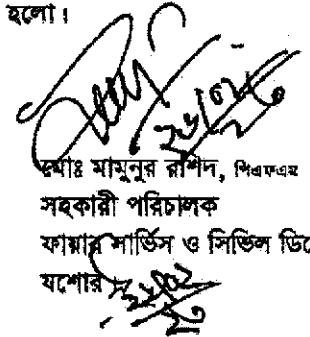 হলো।
২৬/০২/২৩
মোঃ মামুনুর রাশিদ, পিএফএম
সহকারী পরিচালক
ফায়ার সার্ভিস ও সিভিল ডি
যশোর